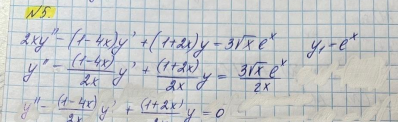 №5.
2xy'' - (1-4x)y' + (1+2x)y - 3√x e^x   y₁ - e^x
y'' - (1-4x)/2x y' + (1+2x)/2x y = 3√x e^x/2x
y'' - (1-4x)/2x y' + (1+2x)/2x y = 0